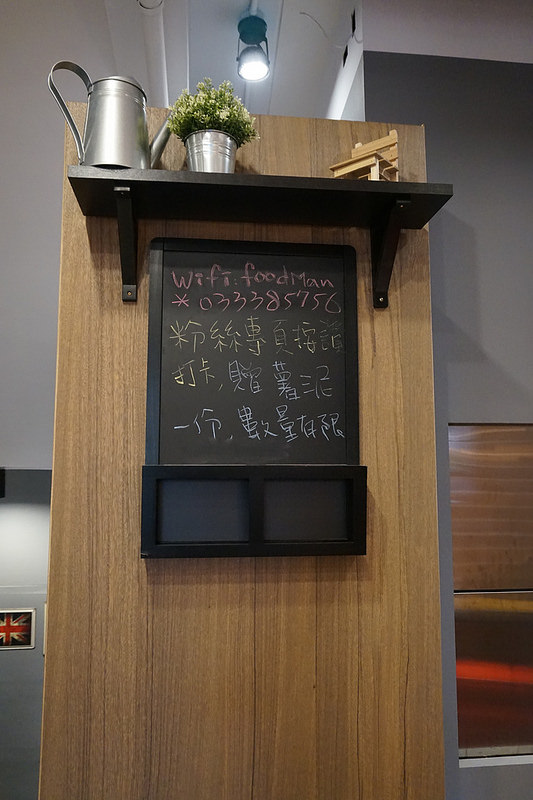 Wifi: foodMan
* 033385756
粉絲專頁按讚
打卡,贈薯泥
一份,數量有限